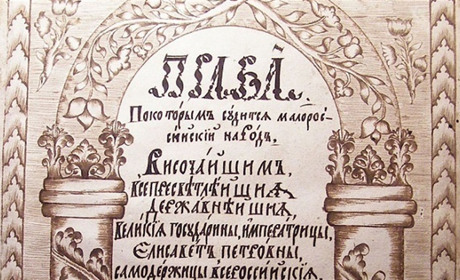 ПРАВА,
Покоторымъ судится малорос-
сійскій народъ.
Височайшимъ,
Всепресветлѣйшия
державнѣйшия,
Великія государини, императрицы,
Елисаветъ Петровны,
самодержицы всероссийския.